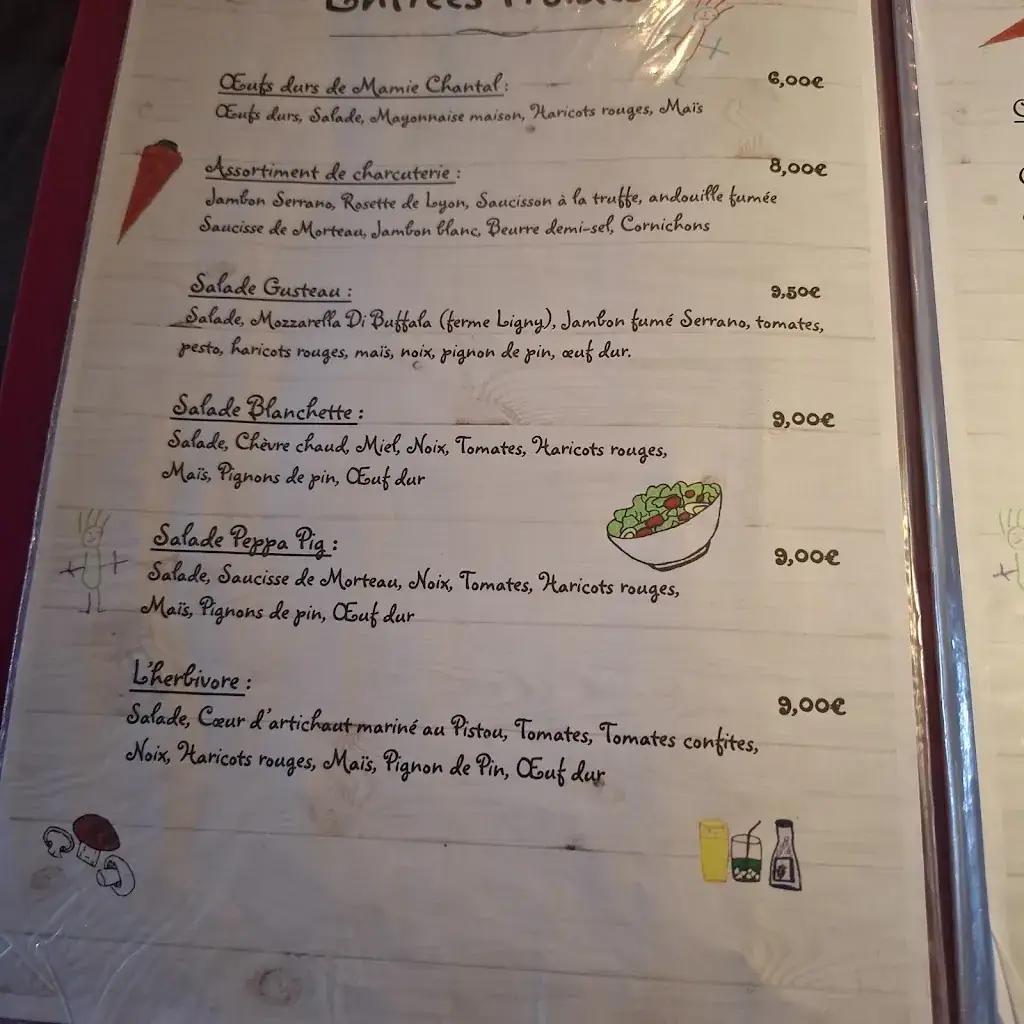 Entrées Froides
Œufs durs de Mamie Chantal : 6,00€
Œufs durs, Salade, Mayonnaise maison, Haricots rouges, Maïs
Assortiment de charcuterie : 8,00€
Jambon Serrano, Rosette de Lyon, Saucisson à la truffe, andouille fumée
Saucisse de Morteau, Jambon blanc, Beurre demi-sel, Cornichons
Salade Gusteau : 9,50€
Salade, Mozzarella Di Buffala (ferme Ligny), Jambon fumé Serrano, tomates,
pesto, haricots rouges, maïs, noix, pignon de pin, œuf dur.
Salade Blanchette : 9,00€
Salade, Chèvre chaud, Miel, Noix, Tomates, Haricots rouges,
Maïs, Pignons de pin, Œuf dur
Salade Peppa Pig : 9,00€
Salade, Saucisse de Morteau, Noix, Tomates, Haricots rouges,
Maïs, Pignons de pin, Œuf dur
L'herbivore : 9,00€
Salade, Cœur d'artichaut mariné au Pistou, Tomates, Tomates confites,
Noix, Haricots rouges, Maïs, Pignon de Pin, Œuf dur